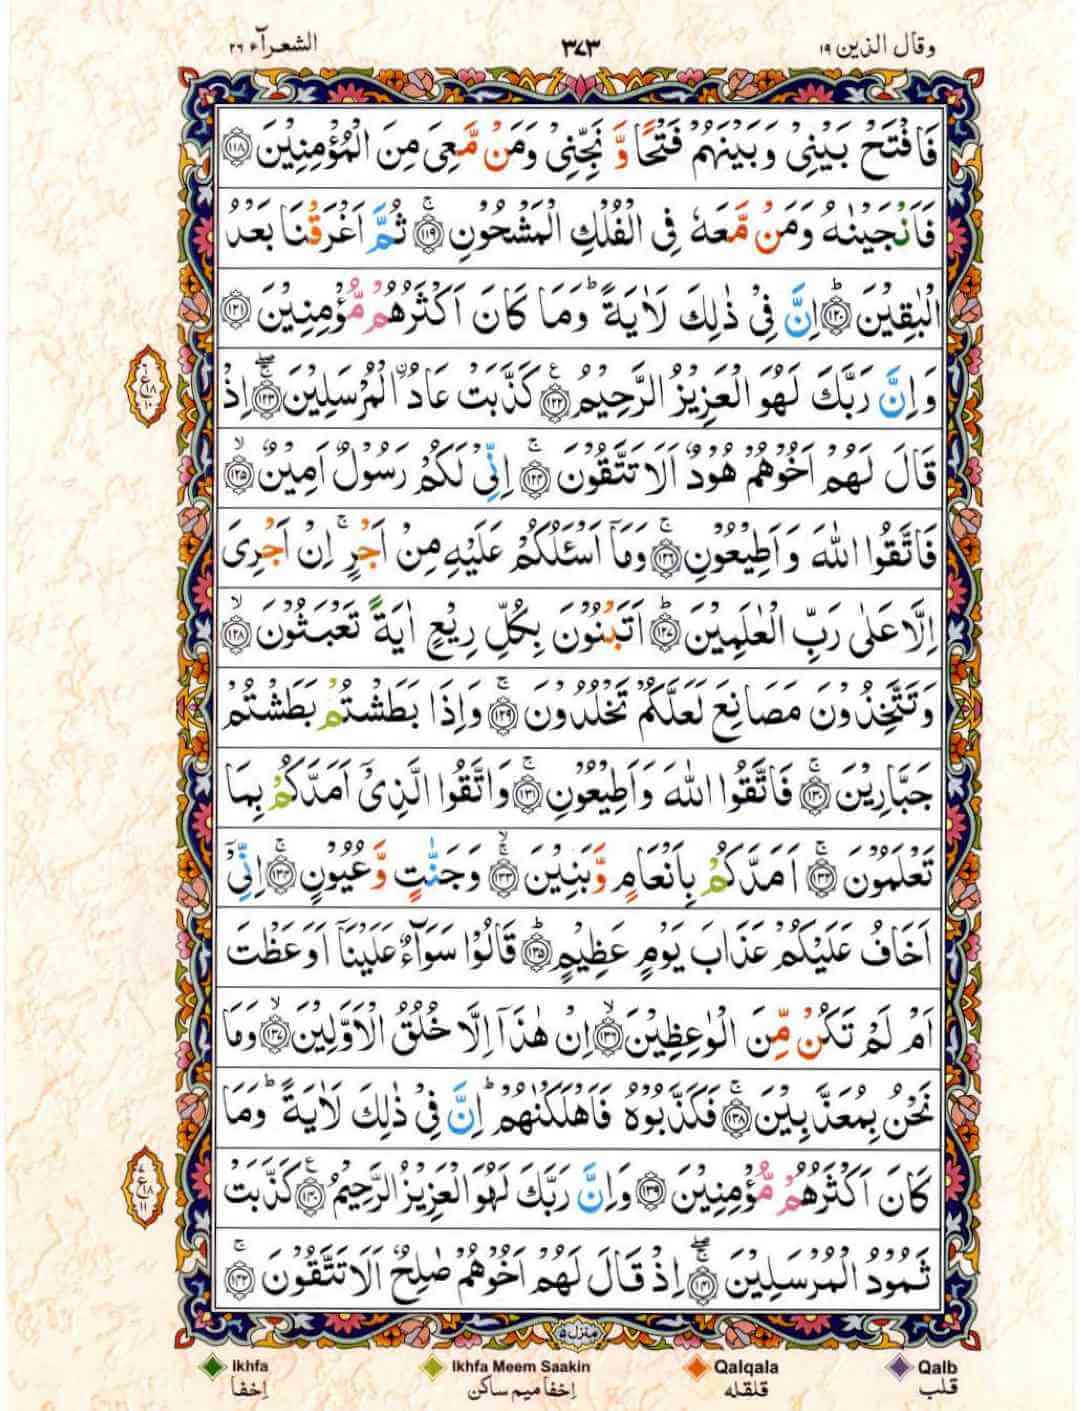 وقال الذين ١٩
٣٧٣
الشعرآء ٢٦
فَافْتَحْ بَيْنِيْ وَبَيْنَهُمْ فَتْحًا وَّ نَجِّنِيْ وَمَنْ مَّعِيَ مِنَ الْمُؤْمِنِيْنَ ﴿١١٨﴾
فَاَنْجَيْنٰهُ وَمَنْ مَّعَهٗ فِي الْفُلْكِ الْمَشْحُوْنِ ۚ﴿١١٩﴾ ثُمَّ اَغْرَقْنَا بَعْدُ
الْبٰقِيْنَ ؕ﴿١٢٠﴾ اِنَّ فِيْ ذٰلِكَ لَاٰيَةً ؕ وَمَا كَانَ اَكْثَرُهُمْ مُّؤْمِنِيْنَ ﴿١٢١﴾
وَاِنَّ رَبَّكَ لَهُوَ الْعَزِيْزُ الرَّحِيْمُ ﴿١٢٢﴾ كَذَّبَتْ عَادُ اۨلْمُرْسَلِيْنَ ﴿١٢٣﴾ اِذْ
قَالَ لَهُمْ اَخُوْهُمْ هُوْدٌ اَلَا تَتَّقُوْنَ ۚ﴿١٢٤﴾ اِنِّيْ لَكُمْ رَسُوْلٌ اَمِيْنٌ ۙ﴿١٢٥﴾
فَاتَّقُوا اللّٰهَ وَاَطِيْعُوْنِ ۚ﴿١٢٦﴾ وَمَاۤ اَسْـَٔلُكُمْ عَلَيْهِ مِنْ اَجْرٍ ۚ اِنْ اَجْرِيَ
اِلَّا عَلٰى رَبِّ الْعٰلَمِيْنَ ؕ﴿١٢٧﴾ اَتَبْنُوْنَ بِكُلِّ رِيْعٍ اٰيَةً تَعْبَثُوْنَ ۙ﴿١٢٨﴾
وَتَتَّخِذُوْنَ مَصَانِعَ لَعَلَّكُمْ تَخْلُدُوْنَ ۚ﴿١٢٩﴾ وَاِذَا بَطَشْتُمْ بَطَشْتُمْ
جَبَّارِيْنَ ۚ﴿١٣٠﴾ فَاتَّقُوا اللّٰهَ وَاَطِيْعُوْنِ ۚ﴿١٣١﴾ وَاتَّقُوا الَّذِيْۤ اَمَدَّكُمْ بِمَا
تَعْلَمُوْنَ ۚ﴿١٣٢﴾ اَمَدَّكُمْ بِاَنْعَامٍ وَّبَنِيْنَ ۚۙ﴿١٣٣﴾ وَجَنّٰتٍ وَّعُيُوْنٍ ۚ﴿١٣٤﴾ اِنِّيْۤ
اَخَافُ عَلَيْكُمْ عَذَابَ يَوْمٍ عَظِيْمٍ ؕ﴿١٣٥﴾ قَالُوْا سَوَآءٌ عَلَيْنَاۤ اَوَعَظْتَ
اَمْ لَمْ تَكُنْ مِّنَ الْوٰعِظِيْنَ ۙ﴿١٣٦﴾ اِنْ هٰذَاۤ اِلَّا خُلُقُ الْاَوَّلِيْنَ ۙ﴿١٣٧﴾ وَمَا
نَحْنُ بِمُعَذَّبِيْنَ ۚ﴿١٣٨﴾ فَكَذَّبُوْهُ فَاَهْلَكْنٰهُمْ ؕ اِنَّ فِيْ ذٰلِكَ لَاٰيَةً ؕ وَمَا
كَانَ اَكْثَرُهُمْ مُّؤْمِنِيْنَ ﴿١٣٩﴾ وَاِنَّ رَبَّكَ لَهُوَ الْعَزِيْزُ الرَّحِيْمُ ﴿١٤٠﴾ كَذَّبَتْ
ثَمُوْدُ الْمُرْسَلِيْنَ ﴿١٤١﴾ اِذْ قَالَ لَهُمْ اَخُوْهُمْ صٰلِحٌ اَلَا تَتَّقُوْنَ ۚ﴿١٤٢﴾
٦ ع ١٨ ١٠
٧ ع ١٨ ١١
منزل ٥
Ikhfa Ikhfa Meem Saakin Qalqala Qalb
اِخفا اِخفا ميم ساكن قلقله قلب